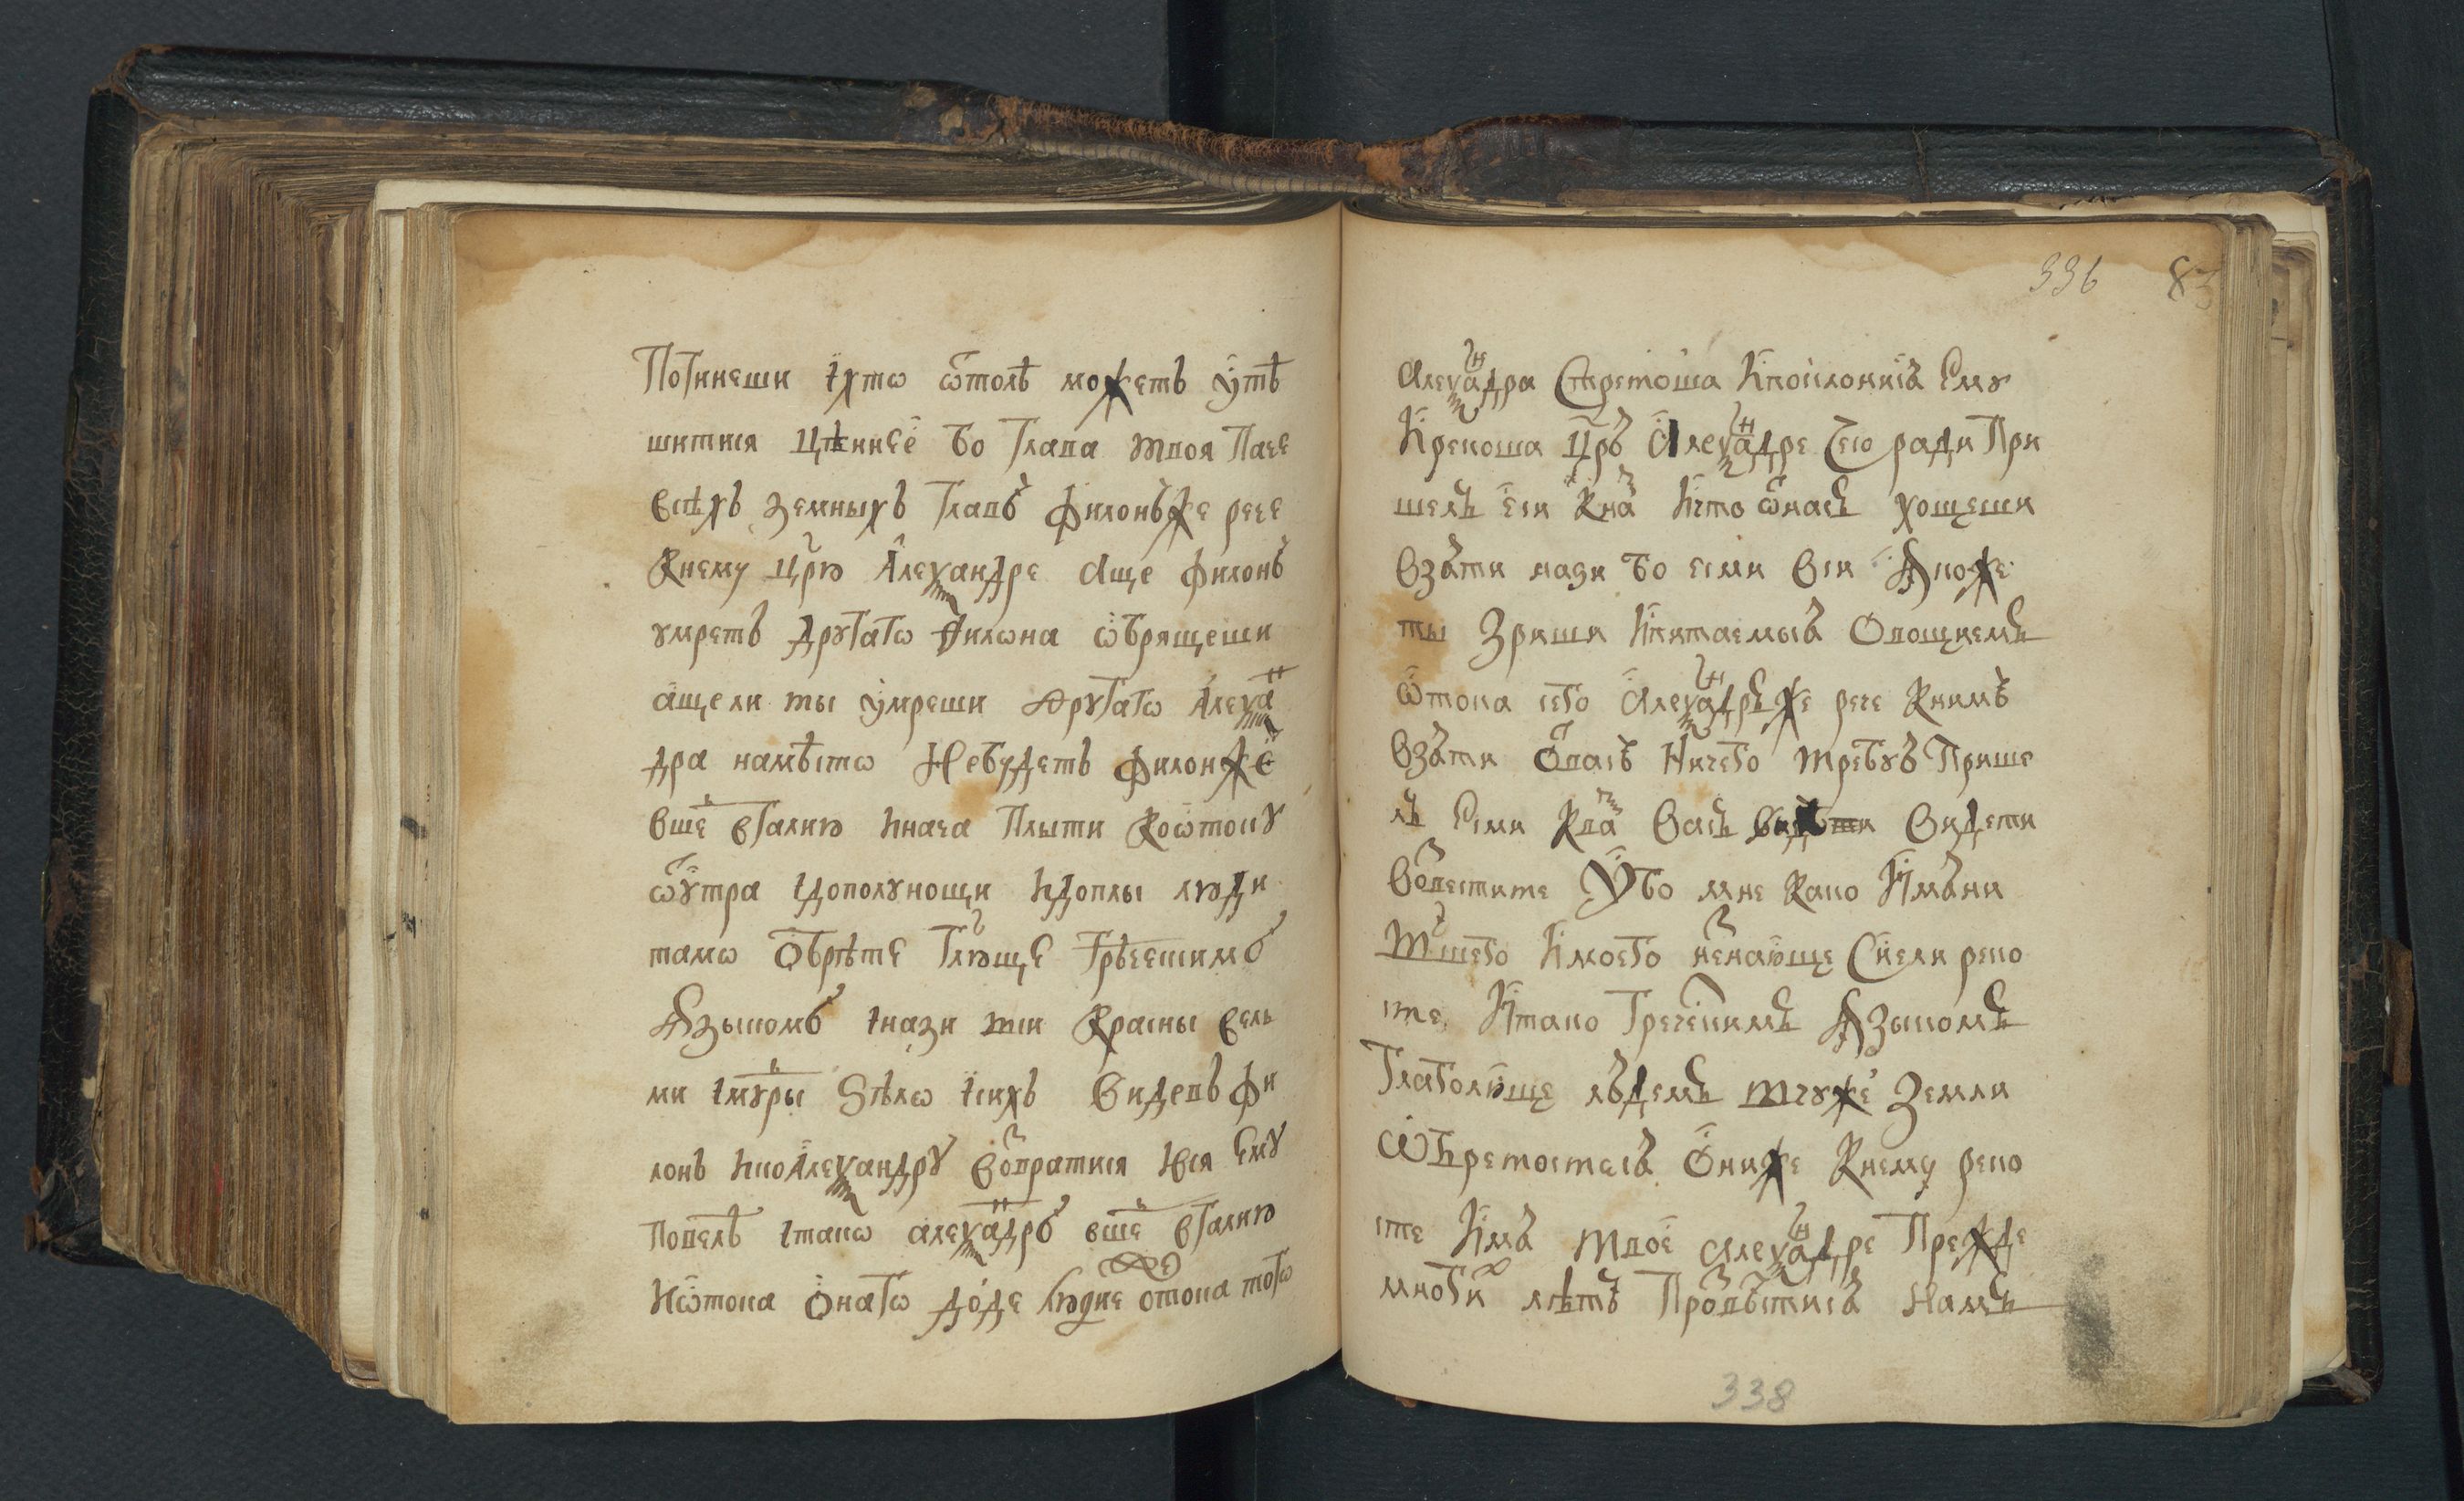 Погинеши їхто ѿтолѣ можетъ ꙋтѣ
шитися цѣннѣе бо глава твоя паче
всѣхъ земныхъ главъ филонъже рече
кнему црю Алеѯандре Аще филонъ
ꙋмретъ другаго филона ѡбрящеши
ащели ты умреши другаго Алеѯан
дра намѣсто Небудетъ филонже
вше вгалию иначатъ плыти коѿтоку
ѿꙋтра їдополꙋнощи идоплы люди
тамо Обрѣте глюще грѣческимъ
языкомъ їнази вси красны вель
ми їмꙋдры ѕѣло їсихъ видевъ фи
лонъ ико Алеѯандрꙋ возвратися ився емꙋ
поведѣ їтако алеѯандръ вше вгалию
иѿтока Онаго доиде людие отока того
336 83
Алеѯандра Стретоша Ипоклонися Емꙋ
Ирекоша црь Алеѯандре Чего ради При
шелъ еси кнам Ичто ѿнасъ хощеши
Взяти нази бо есми вси Якоже
ты Зриши Ипитаемыя Овощиемъ
ѿтока сего Алеѯандръже рече книмъ
Взяти Ѿвасъ Ничего требꙋя Прише
лъ Есми квам васъ видети
Воз̾вестите Убо мне како Имяни
вашего Имоего незнающе Снели реко
сте Итако Греческимъ Языкомъ
Глаголюще людемъ тчꙋже Земли
ѡбретостеся Ониже кнему реко
ста Имя твое Алеѯандре Прежде
многих лѣтъ Провозвѣстися Намъ
338